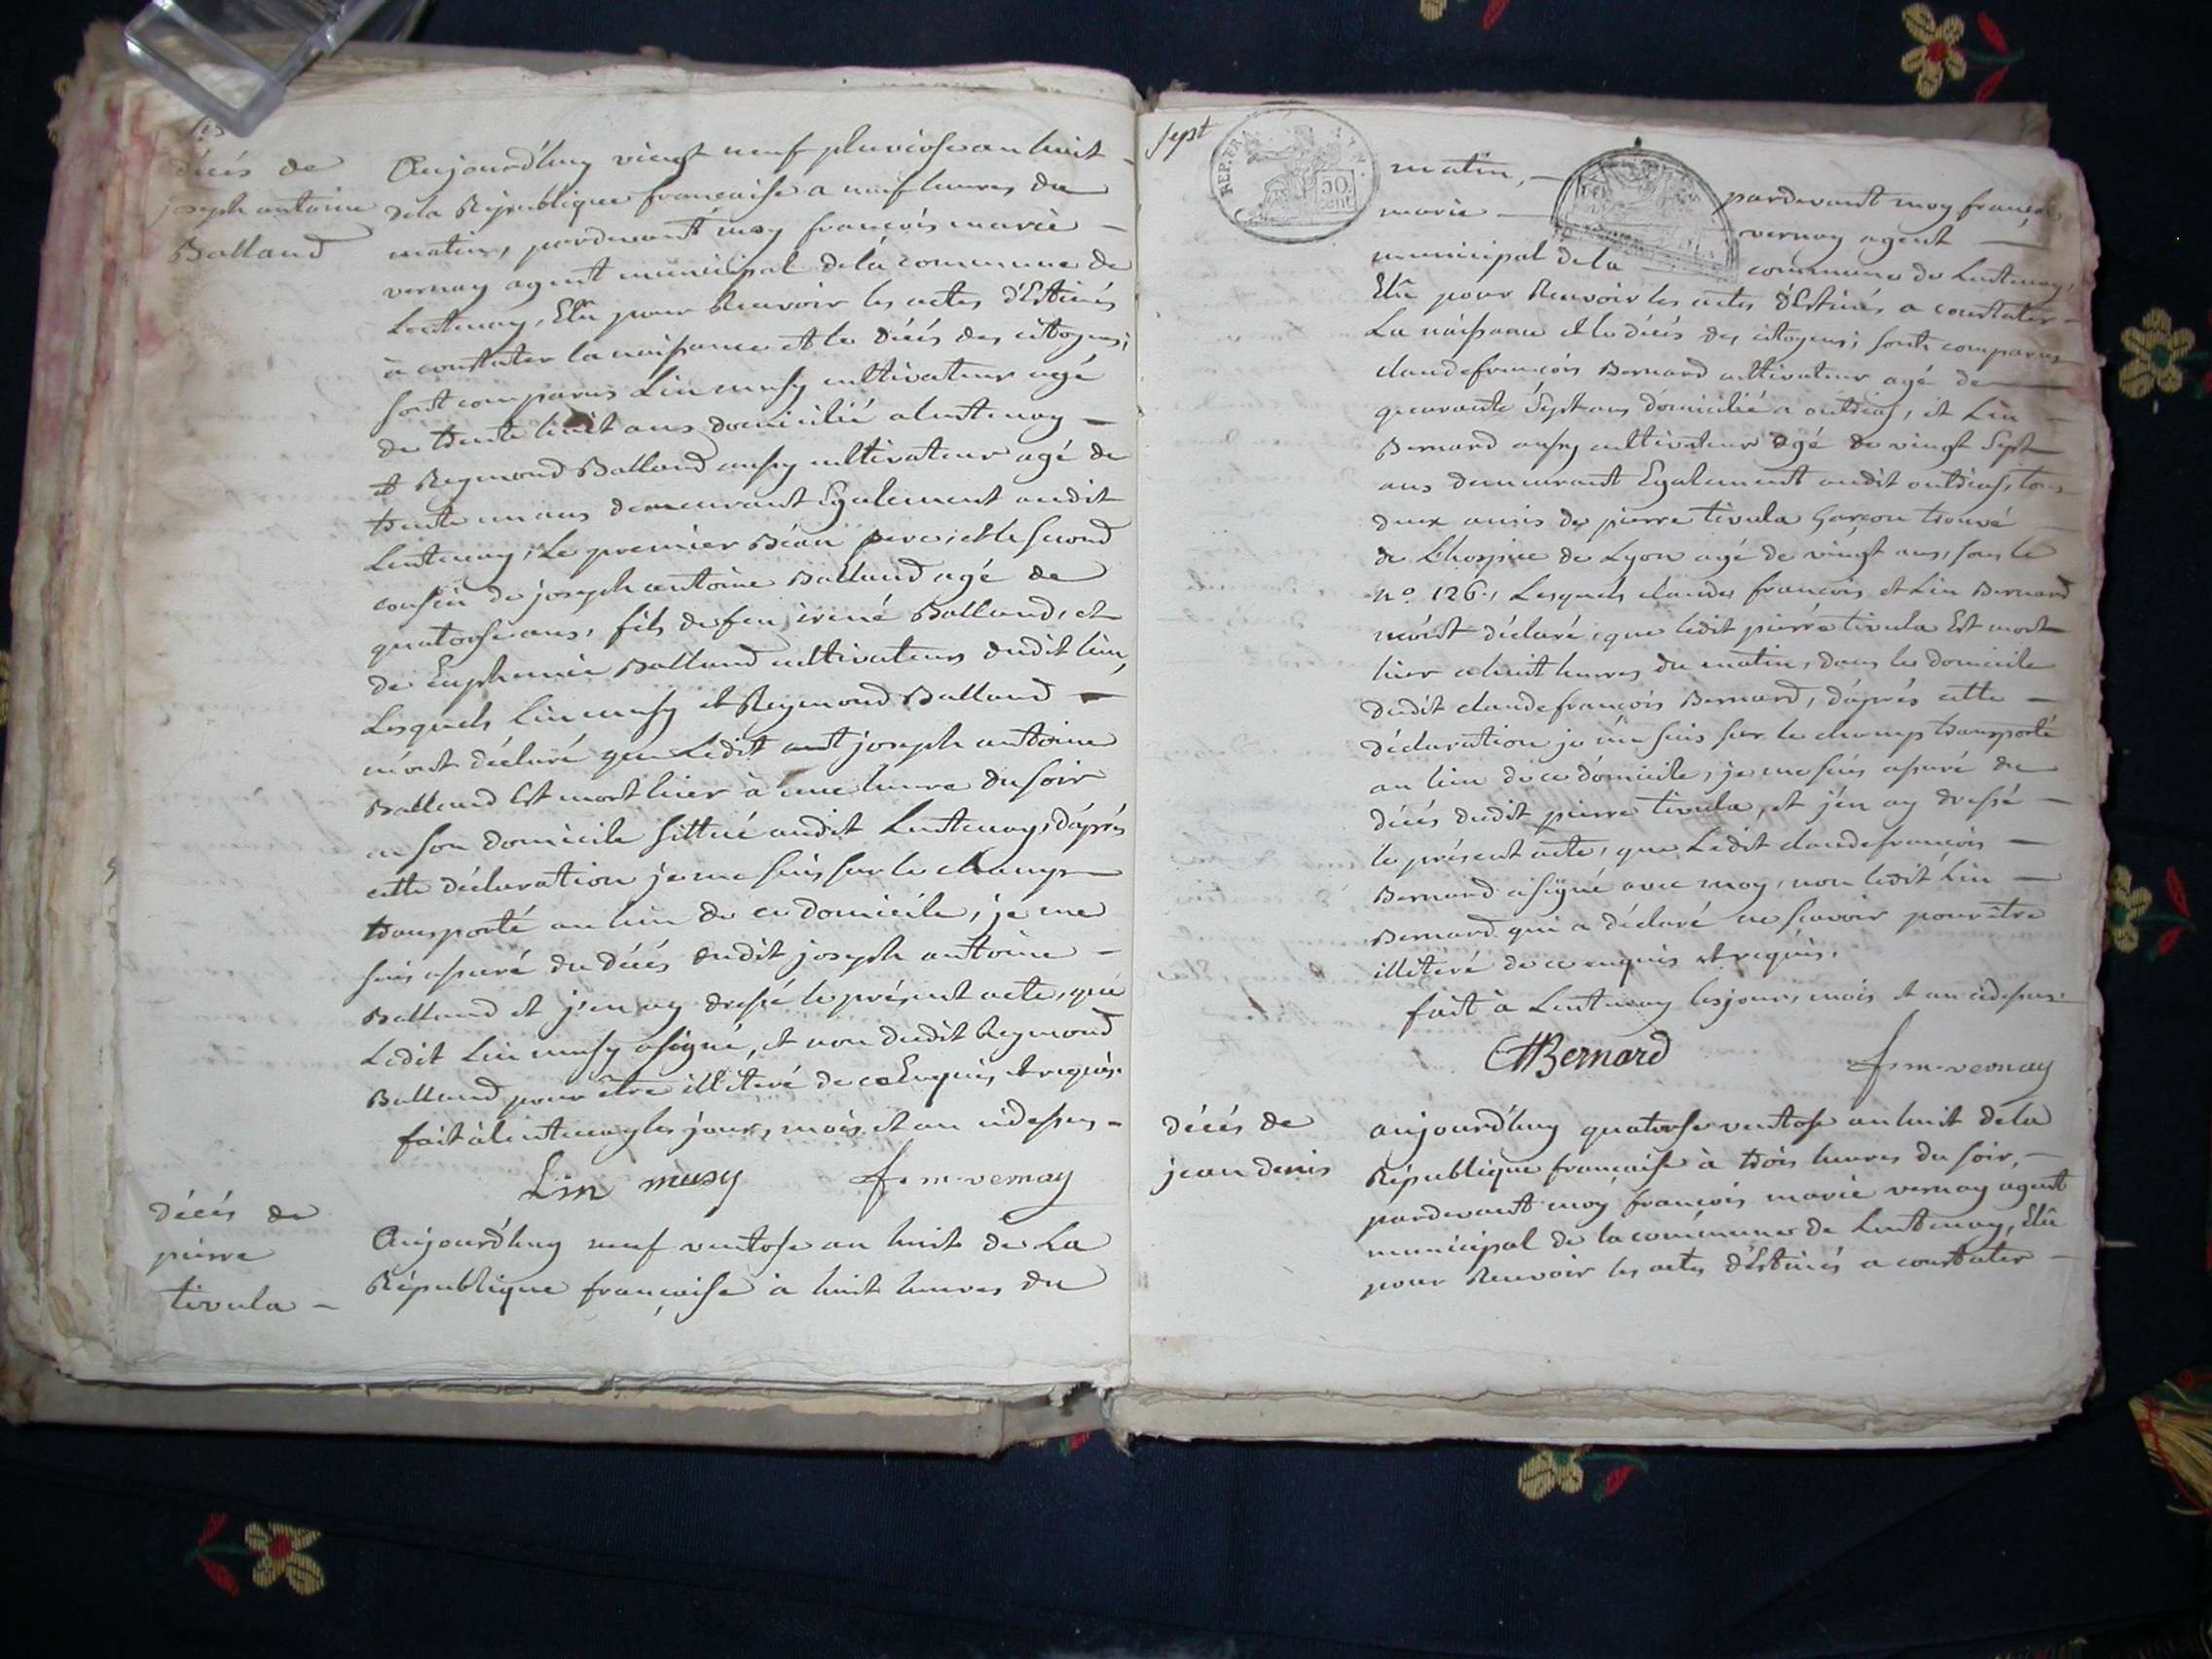 décés de
joseph antoine
Balland
Aujourd'huy vingt neuf pluviose an huit
de la République francaise a neuf heures du
matin, pardevant moy francois marie
vernay agent municipal de la commune de
Lentenay, Elû pour Recevoir les actes d'Estinés
à constater la naissance et le décés des citoyens,
sont comparus Lin musy cultivateur agé
de trente huit ans domicilié a Lentenay
et Reymond Balland aussy cultivateur agé de
trente un ans demeurant Egalement audit
Lentenay, Le premier Beau pere, et le second
cousin de joseph antoine Balland agé de
quatorse ans, fils de feu irené Balland, et
de Euphemie Balland cultivateurs dudit lieu,
Lesquels Lin musy et Reymond Balland
m'ont déclaré que Ledit joseph antoine
Balland Est mort hier à une heure du soir
en son domicile sittué audit Lentenay, d'aprés
cette déclaration je me suis sur le champ
transporté au lieu de ce domicile, je me
suis assuré du décés dudit joseph antoine
Balland et j'en ay dressé le présent acte, que
Ledit Lin musy a signé, et non dudit Reymond
Balland pour être illiteré de ce Enquis et requis.
fait à Lentenay les jour, mois et an cidessus
Lin musy f. m. vernay
décés de
pierre
tivula
Aujourd'huy neuf ventose an huit de La
République française à huit heures du
sept
REP. FRA
50. cent
matin, pardevant moy francois
marie vernay agent
municipal de la commune de Lentenay,
Elû pour Recevoir les actes d'Estinés a constater
La naissance et le décés des citoyens; sont comparus
claude francois Bernard cultivateur agé de
quarante sept ans domicilié a outriaz, et Lin
Bernard aussy cultivateur agé de vingt sept
ans demeurant Egalement audit outriaz, tous
deux amis de pierre tivula Garcon trouvé
de L'hospice de Lyon agé de vingt ans, sous le
n°. 126, Lesquels claude francois et Lin Bernard
m'ont déclaré, que ledit pierre tivula Est mort
hier a huit heures du matin, dans le domicile
dudit claude francois Bernard, d'aprés cette
déclaration je me suis sur le champ transporté
au lieu de ce domicile, je me suis assuré du
décés dudit pierre tivula, et j'en ay dressé
le présent acte, que Ledit claude francois
Bernard a signé avec moy, non ledit Lin
Bernard qui a déclaré ne scavoir pour être
illiteré de ce enquis et requis.
fait à Lentenay les jour, mois et an cidessus.
Bernard f. m. vernay
décés de
jean denis
aujourd'huy quatorse ventose an huit de la
République française à trois heures du soir,
pardevant moy francois marie vernay agent
municipal de la commune de Lentenay, Elû
pour Recevoir les actes d'Estinés a constater